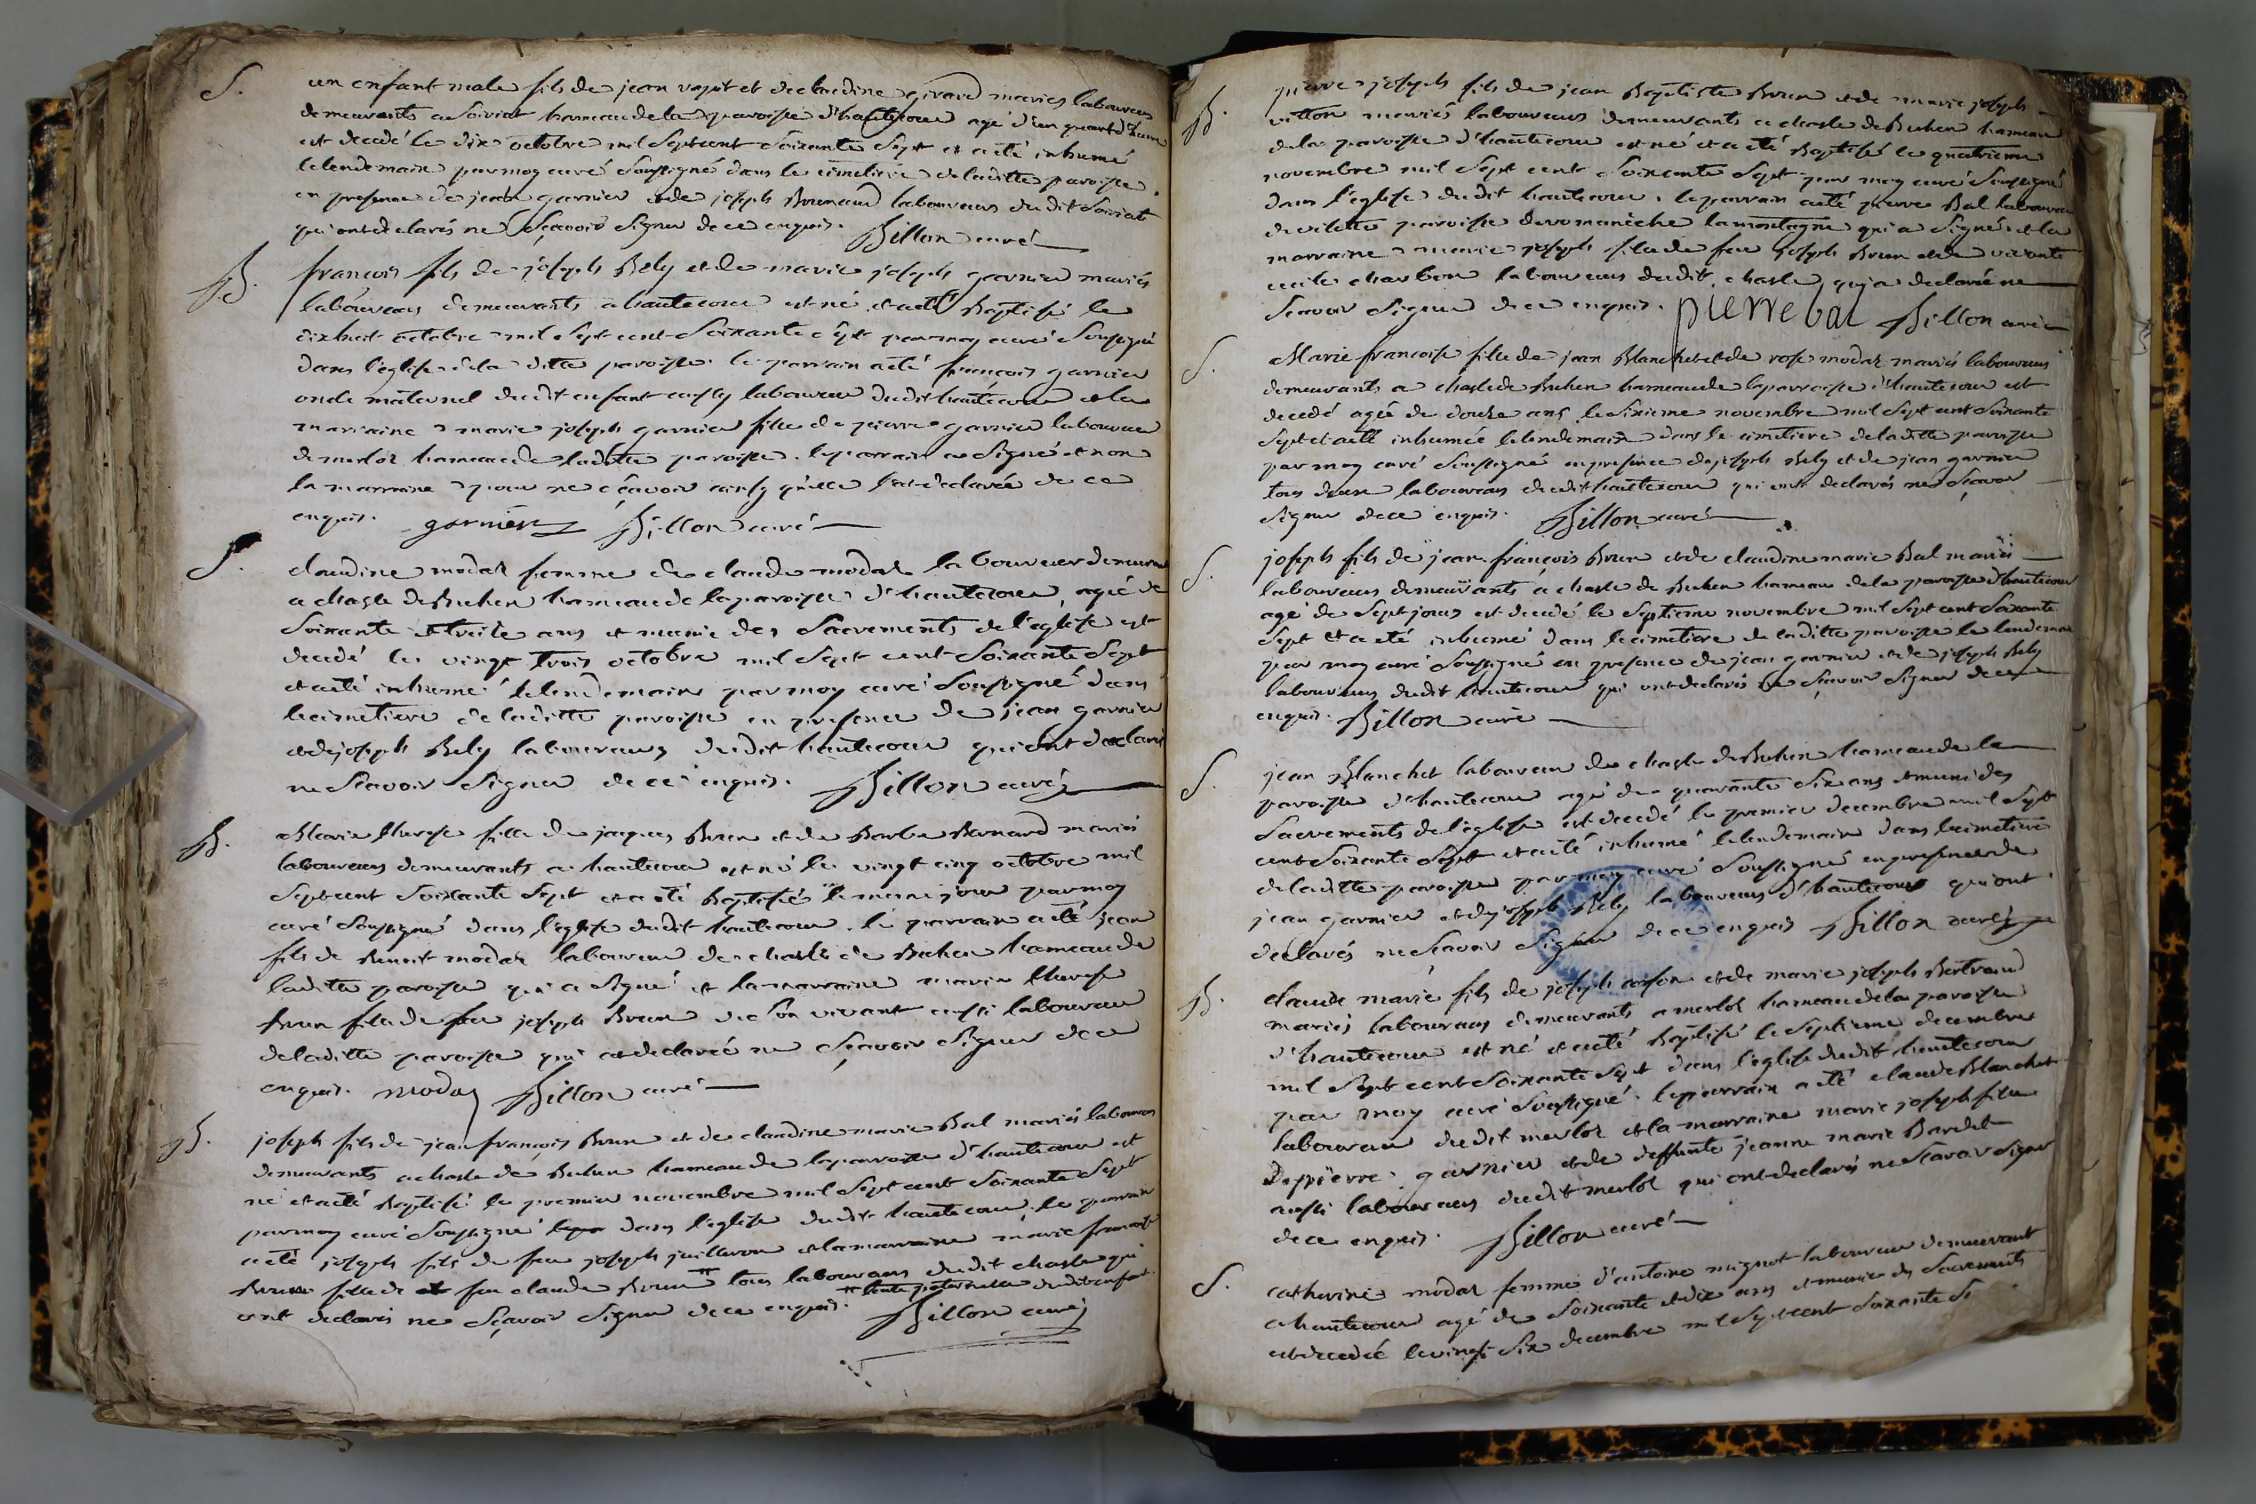 S. un enfant male fils de jean vapit et de claudine girard mariés laboureurs
demeurants a Soiriat hameau de la paroisse d'hautecour agé d'un quart d'heure
est decedé le dix octobre mil Sept cent soixante Sept et a été inhumé
le lendemain par moy curé Soussigné dans le cimetiere de laditte paroisse
en presence de jean garnier et de joseph Brunaud laboureurs dudit Soiriat
qui ont declarés ne Sçavoir Signer de ce enquis. Billon curé
B. francois fils de joseph Bely et de marie joseph garnier mariés
laboureurs demeurants a hautecour est né et a été Baptisé le
dixhuit octobre mil Sept cent Soixante Sept par moy curé Soussigné
dans l'église de la ditte paroisse. le parrain a été francois garnier
oncle maternel dudit enfant aussy laboureur dudit hautecour et la
marraine marie joseph garnier fille de pierre garnier laboureur
de merloz hameau de laditte paroisse. le parrain a Signé et non
la marraine pour ne sçavoir ainsy qu'elle l'at declarée de ce
enquis. garnier Billon curé
S. claudine modas femme de claude modas laboureur demeurant
a chasle de Buhen hameau de la paroisse d'hautecour, agée de
Soixante et treite ans et munie des Sacrements de l'eglise est
decedé le vingt trois octobre mil Sept cent Soixante Sept
et a été inhumé le lendemain par moy curé Soussigné dans
le cimetiere de laditte paroisse en presence de jean garnier
et de joseph Bely laboureurs dudit hautecour qui ont declarés
ne Scavoir Signer de ce enquis. Billon curé
B. Marie therese fille de jacques Brun et de Barbe Bernard mariés
laboureurs demeurants a hautecour est né le vingt cinq octobre mil
Sept cent Soixante Sept et a été Baptisée le meme jour par moy
curé Soussigné dans l'eglise dudit hautecour. le parrain a été jean
fils de Benoit modas laboureur de chasle de Buhen hameau de
laditte paroisse qui a Signé et la marraine marie therese
Brun fille de feu joseph Brun de Son vivant aussi laboureur
de laditte paroisse qui a declarée ne Sçavoir Signer de ce
enquis. modas Billon curé
B. joseph fils de jean françois Brun et de claudine marie Bal mariés laboureurs
demeurants a chasle de Buhen hameau de la paroisse d'hautecour est
né et a été Baptisé le premier novembre mil Sept cent Soixante Sept
par moy curé Soussigné dans l'eglise dudit hautecour. le parrain
a été joseph fils de feu joseph juilleron et la marraine marie francoise
Brun fille de feu claude Brun # tous laboureurs dudit chasle qui
# tente paternelle dudit enfant.
ont declarés ne Sçavoir Signer de ce enquis. Billon curé
B. pierre joseph fils de jean Baptiste Brun et de marie joseph
vitton mariés laboureurs demeurants a chasle de Buhen hameau
de la paroisse d'hautecour est né et a été Baptisé le quatrieme
novembre mil Sept cent Soixante Sept par moy curé Soussigné
dans l'église dudit hautecour. le parrain a été pierre Bal laboureur
de vilette paroisse de romanèche la montagne qui a Signé et la
marraine marie joseph fille de feu joseph Brun et de vivante
cecile charbon laboureurs dudit chasle qui a declarée ne
Scavoir Signer de ce enquis. pierre bal Billon curé
S. Marie francoise fille de jean Blanchet et de rose modas mariés laboureurs
demeurants a chasle de Buhen hameau de la parroisse d'hautecour est
decedé agée de douze ans le Sixieme novembre mil Sept cent Soixante
Sept et a été inhumée le lendemain dans le cimetiere de laditte paroisse
par moy curé Soussigné en presence de joseph Bely et de jean garnier
tous deux laboureurs dudit hautecour qui ont declarés ne Sçavoir
Signer de ce enquis. Billon curé
S. joseph fils de jean-françois Brun et de claudine marie Bal mariés
laboureurs demeurants a chasle de Buhen hameau de la paroisse d'hautecour
agé de Sept jours est decedé le Septieme novembre mil Sept cent Soixante
Sept et a été inhumé dans le cimetiere de laditte paroisse le lendemain
par moy curé Soussigné en presence de jean garnier et de joseph Bely
laboureurs dudit hautecour qui ont declarés ne Sçavoir Signer de ce
enquis. Billon curé
S. jean Blanchet laboureur de chasle de Buhen hameau de la
paroisse d'hautecour agé de quarante Six ans et muni des
Sacrements de l'église est decedé le premier decembre mil Sept
cent Soixante Sept et a été inhumé le lendemain dans le cimetiere
de laditte paroisse par moy curé Soussigné en presence de
jean garnier et de joseph Bely laboureurs d'hautecour qui ont
declarés ne Scavoir Signer de ce enquis Billon curé
B. claude marie fils de joseph et de marie joseph Bertrand
mariés laboureurs demeurants a merloz hameau de la paroisse
d'hautecour est né et a été Baptisé le Septieme decembre
mil Sept cent Soixante Sept dans l'eglise dudit hautecour
par moy curé Soussigné. le parrain a été claude Blanchet
laboureur dudit merloz et la marraine marie joseph fille
de pierre garnier et de deffunte jeanne marie Bardet
aussi laboureurs dudit merloz qui ont declarés ne Scavoir Signer
de ce enquis. Billon curé
S. catherine modas femme d'antoine mignot laboureur demeurant
a hautecour agé de Soixante et dix ans et munie des Sacrements
est decedée le vingt Six decembre mil Sept cent Soixante Se